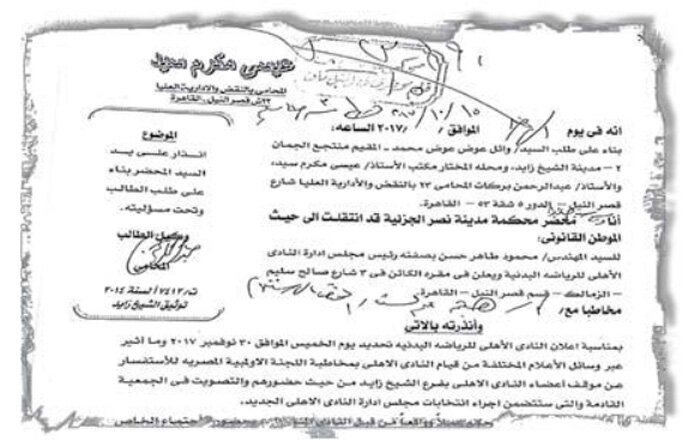 عيسى مكرم سيد
المحامى بالنقض والادارية العليا
٢٣ش قصر النيل ـ القاهرة
الموضوع
انذار على يد
السيد المحضر بناء
على طلب الطالب
وتحت مسؤليته.
وكيل الطالب
المحامى
ت/٧٤١٣ لسنة ٢٠١٤
توثيق الشيخ زايد
انه فى يوم الموافق ١٥/١٠/٢٠١٧ الساعه:
بناء على طلب السيد/ وائل عوض عوض محمد ـ المقيم منتجع الجمان
٢ – مدينة الشيخ زايد، ومحله المختار مكتب الأستاذ/ عيسى مكرم سيد،
والأستاذ/ عبدالرحمن بركات المحامى ٢٣ بالنقض والأدارية العليا شارع
قصر النيل – الدور ٥ شقة ٥٣ – القاهرة.
أنا محضر محكمة مدينة نصر الجزئية قد انتقلت الى حيث
الموطن القانونى:
للسيد المهندس/ محمود طاهر حسن بصفته رئيس مجلس ادارة النادى
الأهلى للرياضه البدنية ويعلن فى مقره الكائن فى ٣ شارع صالح سليم
– الزمالك – قسم قصر النيل – القاهرة.
مخاطبا مع/
وأنذرته بالاتى
بمناسبة اعلان النادى الأهلى للرياضه البدنيه تحديد يوم الخميس الموافق ٣٠ نوفمبر ٢٠١٧ وما أثير
عبر وسائل الأعلام المختلفة من قيام النادى الاهلى بمخاطبة اللجنة الاولمبية المصريه للأستفسار
عن موقف أعضاء النادى الاهلى بفرع الشيخ زايد من حيث حضورهم والتصويت فى الجمعية
القادمة والتى ستتضمن اجراء انتخابات مجلس ادارة النادى الاهلى الجديد.
من قبل النادى الخاص